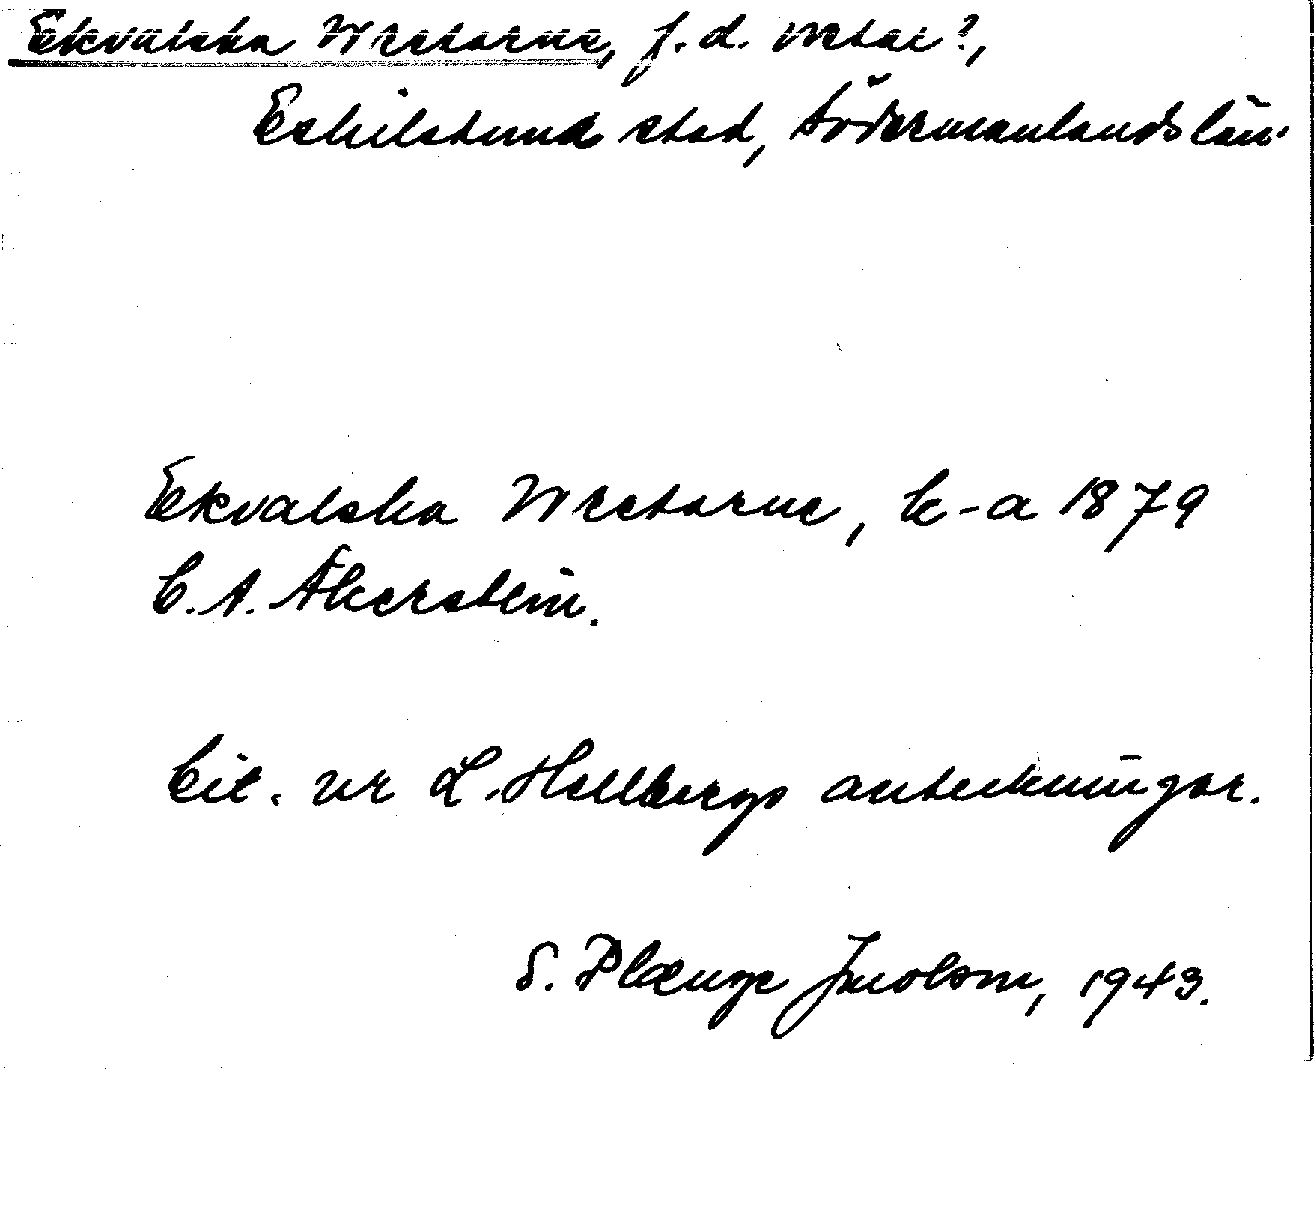 Ekvalska Wretarne, f.d. vretar?,
Eskilstuna stad, Södermanlands län.
Ekvalska Wretarne, k-a 1879
C. A. Åkerstein.
Cit. ur L. Hallbergs anteckningar.
S. Plænge Jacobson, 1943.